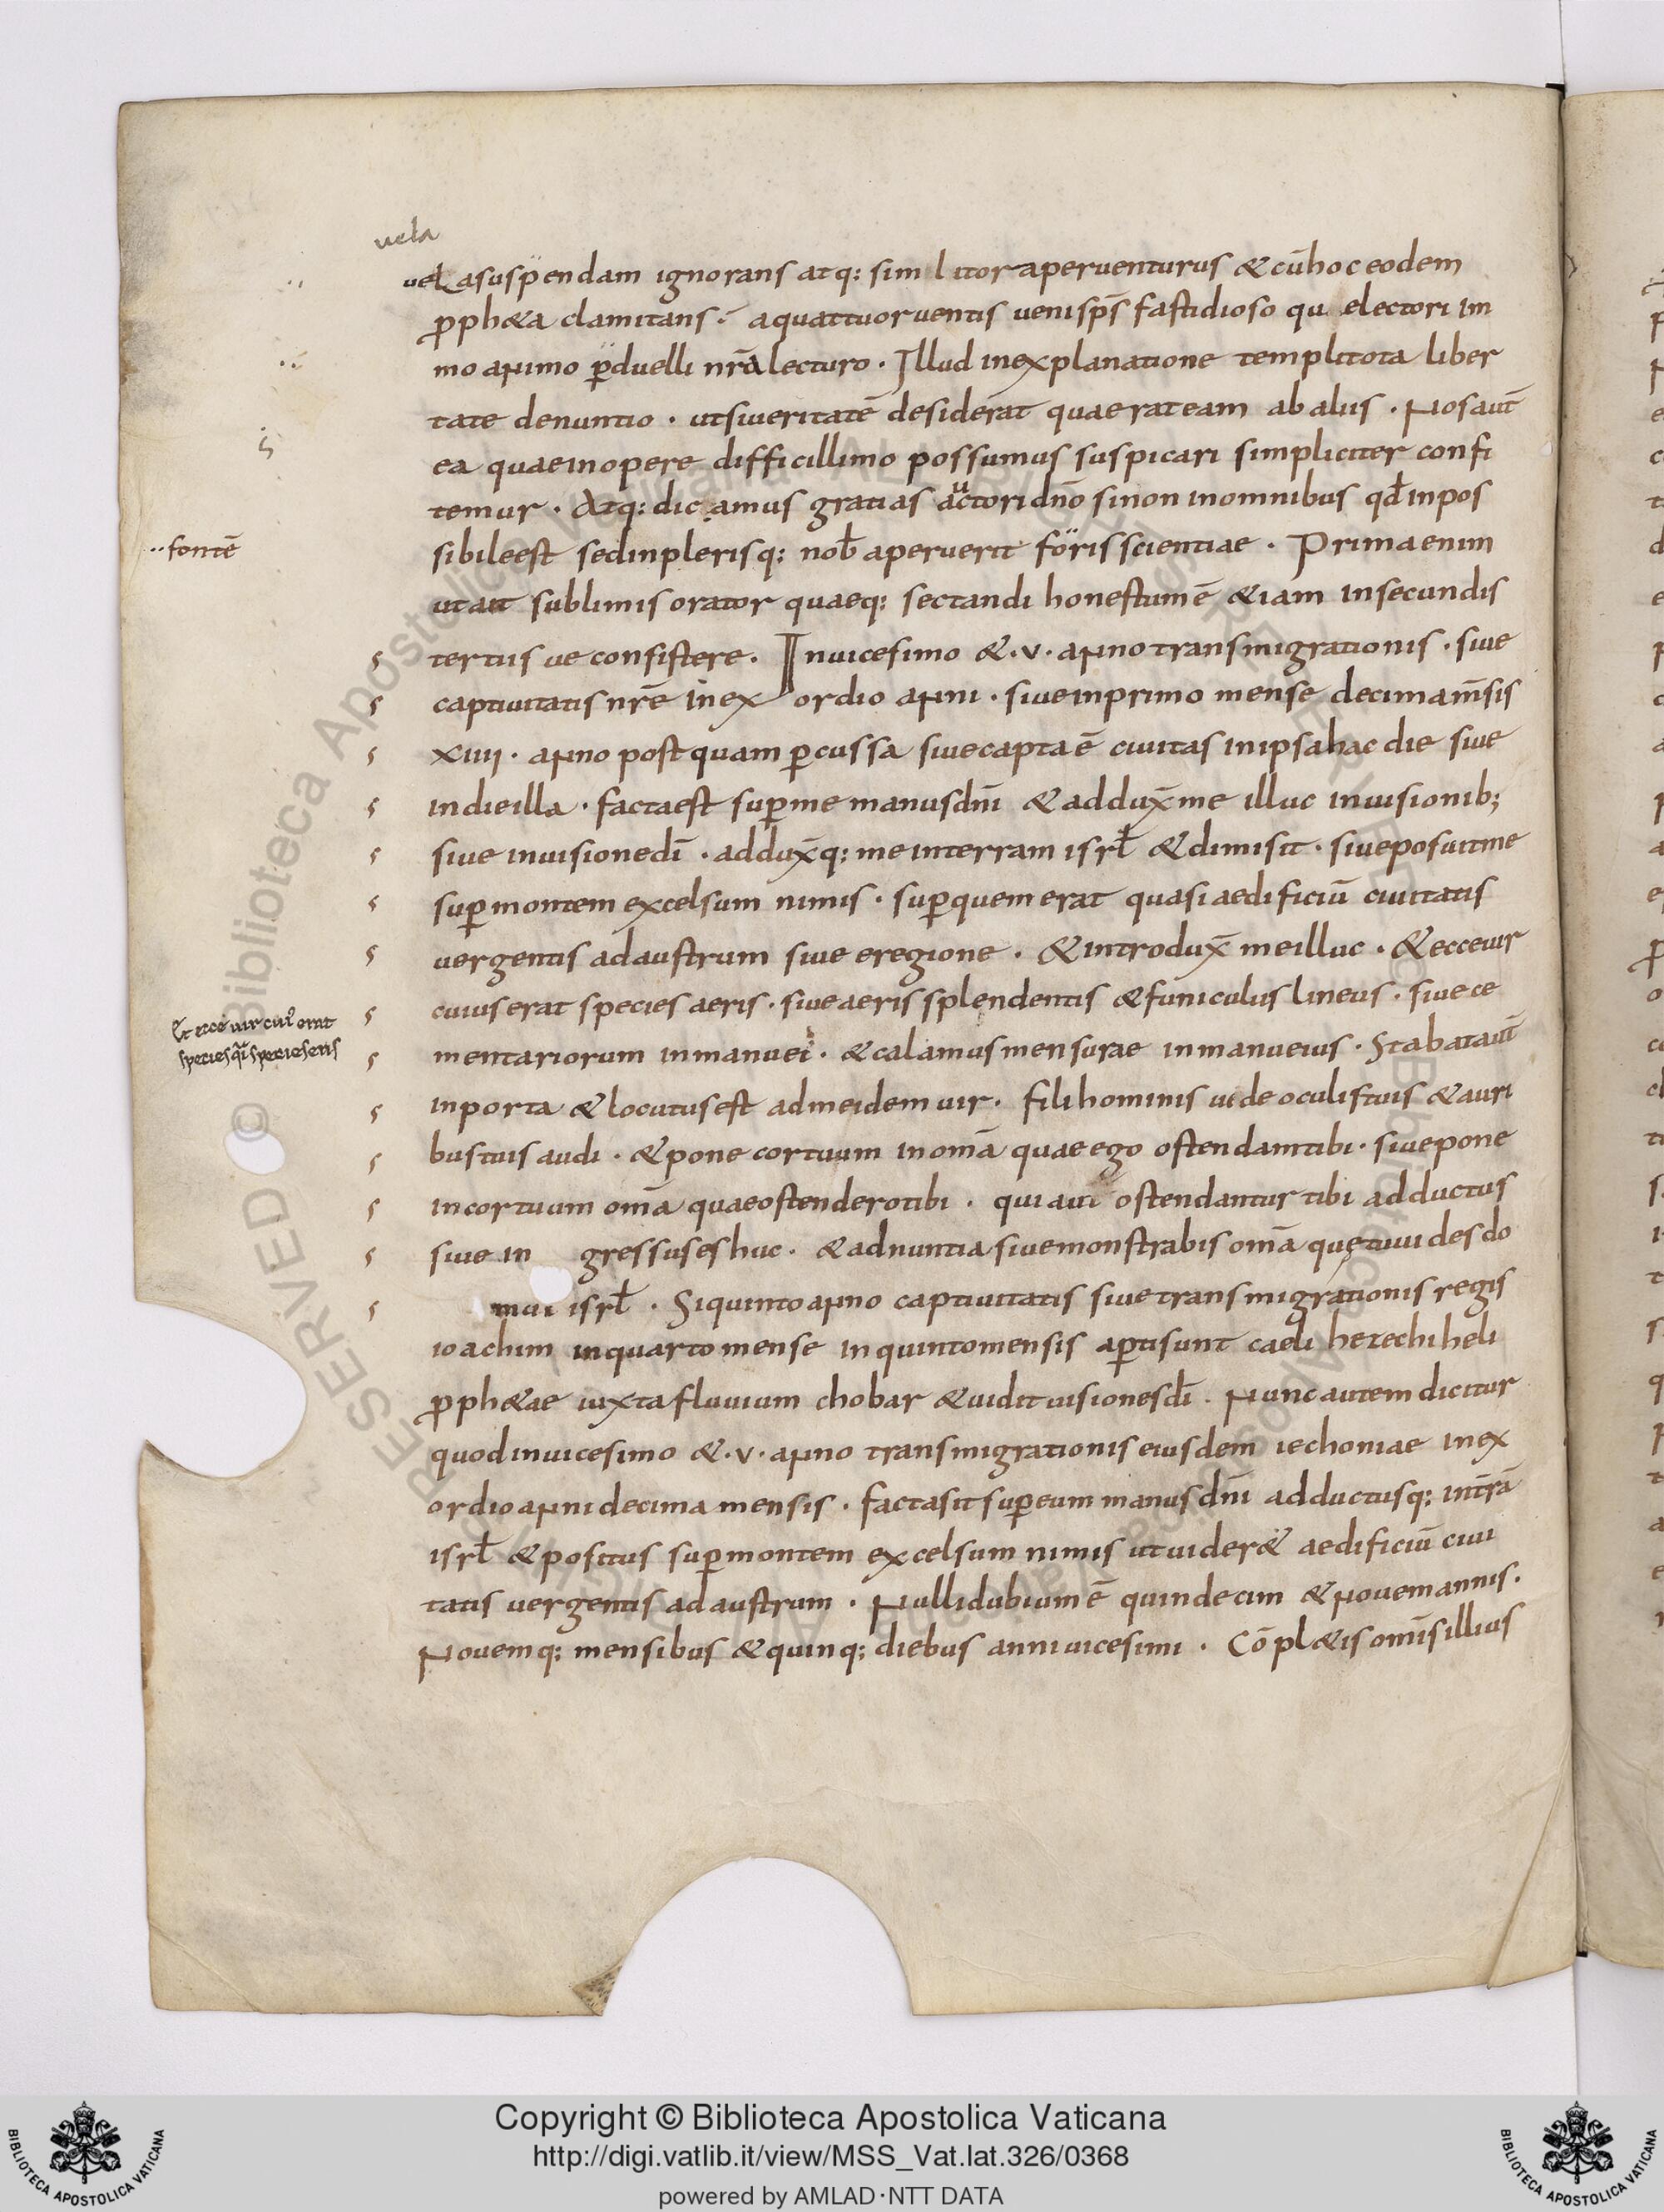 uela
uela suspendam ignorans atq: sim litora peruenturus & cū hoc eodem
ꝓph&a clamitans. a quattuor uentis ueni sp̄s fastidioso qu electori im
mo animo ꝑduelli nr̄a lecturo. Illud in explanatione templi tota liber
tate denuntio. ut si ueritatē desiderat quaerat eam ab aliis. Nos aut̄
ea quae in opere difficillimo possumus suspicari simpliciter confi
temur. Atq: dicamus gratias auctori dn̄o si non in omnibus qd̄ inpos
sibile est sed in plerisq: nob̄ aperuerit foris scientiae. Prima enim
··fontē
ut ait sublimis orator quaeq: sectandi honestum ē &iam in secundis
tertiis ue consistere. In uicesimo &.v. anno transmigrationis. siue
captiuitatis nr̄e in exordio anni. siue in primo mense decima m̄sis
xiiii. anno postquam ꝑcussa siue capta ē ciuitas in ipsa hac die siue
in die illa. facta est suꝑ me manus dn̄i & addux̄ me illuc in uisionib;
siue in uisione dī. addux̄q: me in terram isrl̄ & dimisit. siue posuit me
suꝑ montem excelsum nimis. suꝑ quem erat quasi aedificiū ciuitatis
uergentis ad austrum siue e regione. & introdux̄ me illuc. & ecce uir
cuius erat species aeris. siue aeris splendentis & funiculus lineus. siue ce
Et ecce uir cui' erat
species q̄i species eris
mentariorum in manu ei. & calamus mensurae in manu eius. Stabat aut̄
in porta & locutus est ad me idem uir. fili hominis uide oculis tuis & auri
bus tuis audi. & pone cor tuum in om̄a quae ego ostendam tibi. siue pone
in cor tuum om̄a quae ostendero tibi. qui aut ostendantur tibi adductus
siue in gressus es huc. & adnuntia siue monstrabis om̄a quę tu uides do
mui isrl̄. Si quinto anno captiuitatis siue transmigrationis regis
ioachim in quarto mense in quinto mensis aꝑti sunt caeli hezechiheli
ꝓph&ae iuxta fluuium chobar & uidit uisiones dī. Nunc autem dicitur
quod in uicesimo &.v. anno transmigrationis eiusdem iechoniae in ex
ordio anni decima mensis. facta sit suꝑ eum manus dn̄i adductusq: in tr̄ā
isrl̄ & positus suꝑ montem excelsum nimis ut uider& aedificiū ciui
tatis uergentis ad austrum. Nulli dubium ē quindecim & nouem annis.
Nouemq: mensibus & quinq; diebus anni uicesimi. Cōpl&is om̄is illius
Copyright © Biblioteca Apostolica Vaticana
http://digi.vatlib.it/view/MSS_Vat.lat.326/0368
powered by AMLAD·NTT DATA
BIBLIOTECA APOSTOLICA VATICANA
BIBLIOTECA APOSTOLICA VATICANA